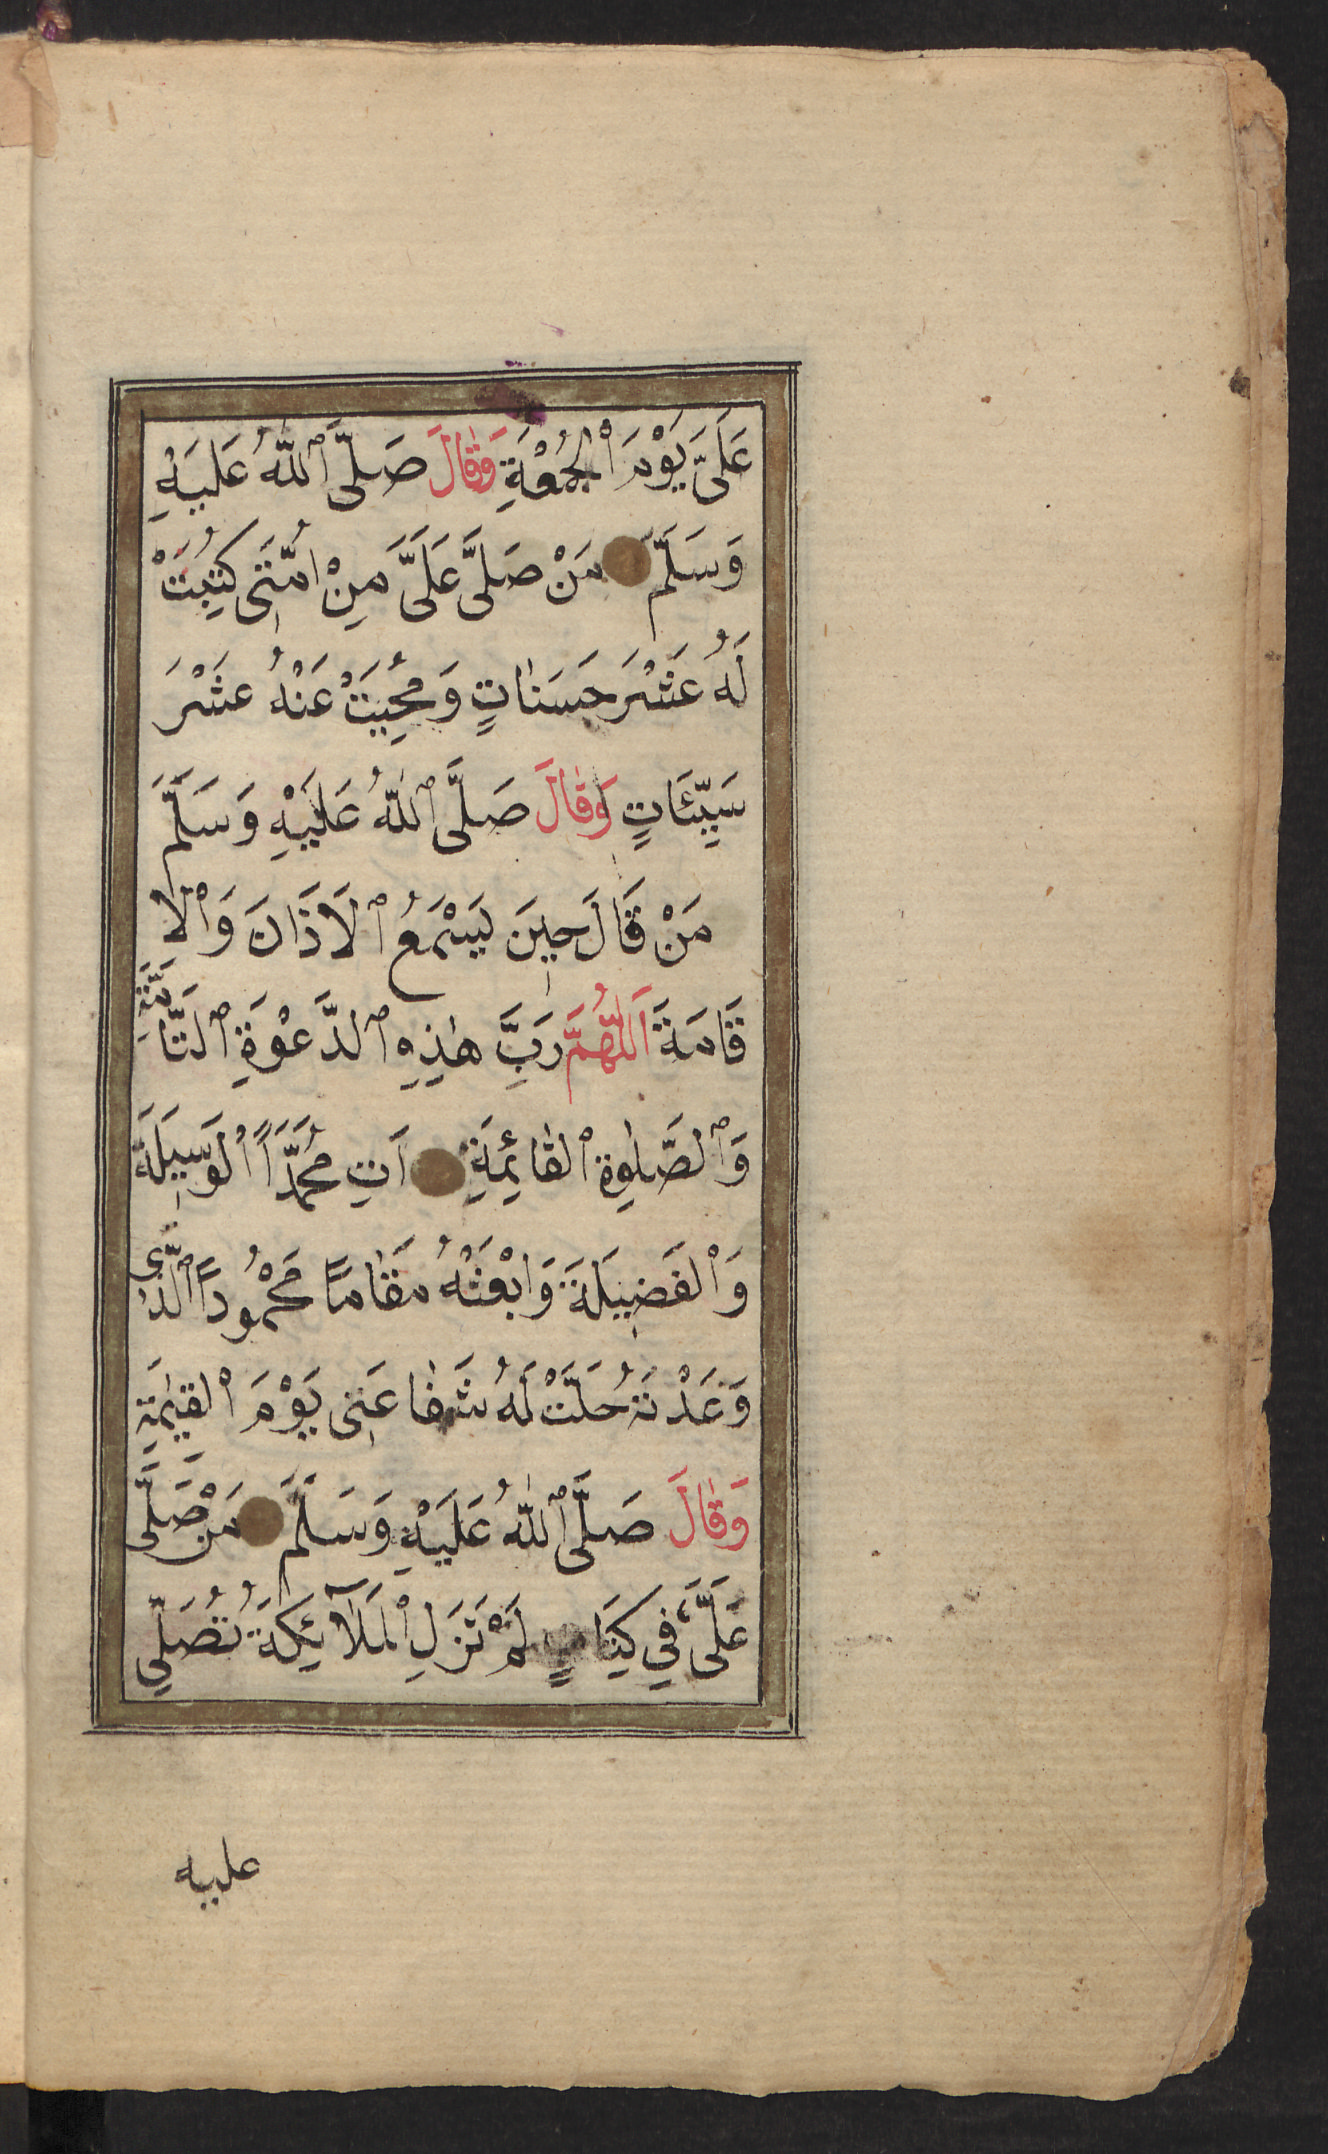 عَلَىَّ يَوْمَ ٱلْجُمُعَةِ وَقَالَ صَلَّى ٱللّٰهُ عَلَيْهِ
وَسَلَّمَ مَنْ صَلَّى عَلَىَّ مِنْ اُمَّتِى كُتِبَتْ
لَهُ عَشْرَ حَسَنَاتٍ وَمُحِيَتْ عَنْهُ عَشْرَ
سَيِّئَاتٍ وَقَالَ صَلَّى ٱللّٰهُ عَلَيْهِ وَسَلَّمَ
مَنْ قَالَ حِينَ يَسْمَعُ ٱلْاَذَانَ وَٱلْاِ
قَامَةَ اَللّٰهُمَّ رَبَّ هٰذِهِ ٱلدَّعْوَةِ ٱلتَّامَّةِ
وَٱلصَّلٰوةِ ٱلْقَائِمَةِ اٰتِ مُحَمَّدًا ٱلْوَسِيلَةَ
وَٱلْفَضِيلَةَ وَابْعَثْهُ مَقَامًا مَحْمُودًا ٱلَّذِى
وَعَدْتَهُ حَلَّتْ لَهُ شَفَاعَتِى يَوْمَ ٱلْقِيٰمَةِ
وَقَالَ صَلَّى ٱللّٰهُ عَلَيْهِ وَسَلَّمَ مَنْ صَلَّى
عَلَىَّ فِي كِتَابٍ لَمْ تَزَلِ ٱلْمَلَآئِكَةُ تُصَلِّي
عليه